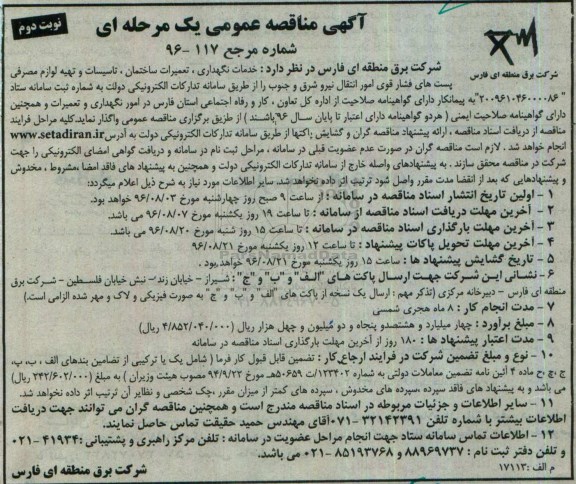 آگهی مناقصه عمومی یک مرحله ای
نوبت دوم
شماره مرجع ۱۱۷ -۹۶
شرکت برق منطقه ای فارس
شرکت برق منطقه ای فارس در نظر دارد : خدمات نگهداری ، تعمیرات ساختمان ، تاسیسات و تهیه لوازم مصرفی
پست های فشار قوی امور انتقال نیرو شرق و جنوب را از طریق سامانه تدارکات الکترونیکی دولت به شماره ثبت سامانه ستاد
"۲۰۰۹۶۱۰۴۶۰۰۰۰۸۶" به پیمانکار دارای گواهینامه صلاحیت از اداره کل تعاون ، کار و رفاه اجتماعی استان فارس در امور نگهداری و تعمیرات و همچنین
دارای گواهینامه صلاحیت ایمنی ( هردو گواهینامه دارای اعتبار تا پایان سال ۹۶ باشند ) از طریق برگزاری مناقصه عمومی واگذار نماید.کلیه مراحل فرایند
مناقصه از دریافت اسناد مناقصه ، ارائه پیشنهاد مناقصه گران و گشایش پاکتها از طریق سامانه تدارکات الکترونیکی دولت به آدرس www.setadiran.ir
انجام خواهد شد . لازم است مناقصه گران در صورت عدم عضویت قبلی در سامانه ، مراحل ثبت نام در سامانه و دریافت گواهی امضای الکترونیکی را جهت
شرکت در مناقصه محقق سازند . به پیشنهادهای واصله خارج از سامانه تدارکات الکترونیکی دولت و همچنین به پیشنهاد های فاقد امضا ،مشروط ، مخدوش
و پیشنهادهایی که بعد از انقضا مدت مقرر واصل شود ترتیب اثر داده نخواهد شد. سایر اطلاعات مورد نیاز به شرح ذیل اعلام میگردد:
۱ - اولین تاریخ انتشار اسناد مناقصه در سامانه : از ساعت ۹ صبح روز چهارشنبه مورخ ۹۶/۰۸/۰۳ خواهد بود.
۲ - آخرین مهلت دریافت اسناد مناقصه از سامانه : تا ساعت ۱۹ روز یکشنبه مورخ ۹۶/۰۸/۰۷ می باشد.
۳ - آخرین مهلت بارگذاری اسناد مناقصه در سامانه : تا ساعت ۱۵ روز شنبه مورخ ۹۶/۰۸/۲۰ می باشد.
۴ - آخرین مهلت تحویل پاکات پیشنهاد : تا ساعت ۱۲ روز یکشنبه مورخ ۹۶/۰۸/۲۱
۵ - تاریخ گشایش پیشنهاد ها : ساعت ۱۵ روز یکشنبه مورخ ۹۶/۰۸/۲۱ خواهد بود .
۶ - نشانی این شرکت جهت ارسال پاکت های "الف" و "ب" و "ج" : شیراز - خیابان زند - نبش خیابان فلسطین - شرکت برق
منطقه ای فارس - دبیرخانه مرکزی (تذکر مهم : ارسال یک نسخه از پاکت های "الف" و "ب" و "ج" به صورت فیزیکی و لاک و مهر شده الزامی است.)
۷ - مدت انجام کار : ۸ ماه هجری شمسی
۸ - مبلغ برآورد : چهار میلیارد و هشتصدو پنجاه و دو میلیون و چهل هزار ریال (۴/۸۵۲/۰۴۰/۰۰۰ ریال)
۹ - مدت اعتبار پیشنهاد ها : ۱۸۰ روز از آخرین مهلت بارگذاری اسناد مناقصه در سامانه
۱۰ - نوع و مبلغ تضمین شرکت در فرایند ارجاع کار : تضمین قابل قبول کار فرما ( شامل یک یا ترکیبی از تضامین بندهای الف ، ب، پ،
ج ،چ ،ح ماده ۴ آئین نامه تضمین معاملات دولتی به شماره ۱۲۳۴۰۲/ت۵۰۶۵۹ه مورخ ۹۴/۹/۲۲ مصوب هیئت وزیران ) به مبلغ (۲۴۲/۶۰۲/۰۰۰ ریال)
می باشد و به پیشنهاد های فاقد سپرده ،سپرده های مخدوش ، سپرده های کمتر از میزان مقرر ،چک شخصی و نظایر آن ترتیب اثر داده نخواهد شد.
۱۱ - سایر اطلاعات و جزئیات مربوطه در اسناد مناقصه مندرج است و همچنین مناقصه گران می توانند جهت دریافت
اطلاعات بیشتر با شماره تلفن ۳۲۱۴۲۳۹۱ -۰۷۱ آقای مهندس حمید حقیقت تماس حاصل نمایند.
۱۲ - اطلاعات تماس سامانه ستاد جهت انجام مراحل عضویت در سامانه : تلفن مرکز راهبری و پشتیبانی : ۴۱۹۳۴ -۰۲۱
و تلفن دفتر ثبت نام : ۸۸۹۶۹۷۳۷ و ۸۵۱۹۳۷۶۸ -۰۲۱ می باشد.
م الف : ۱۷۱۱۳
شرکت برق منطقه ای فارس